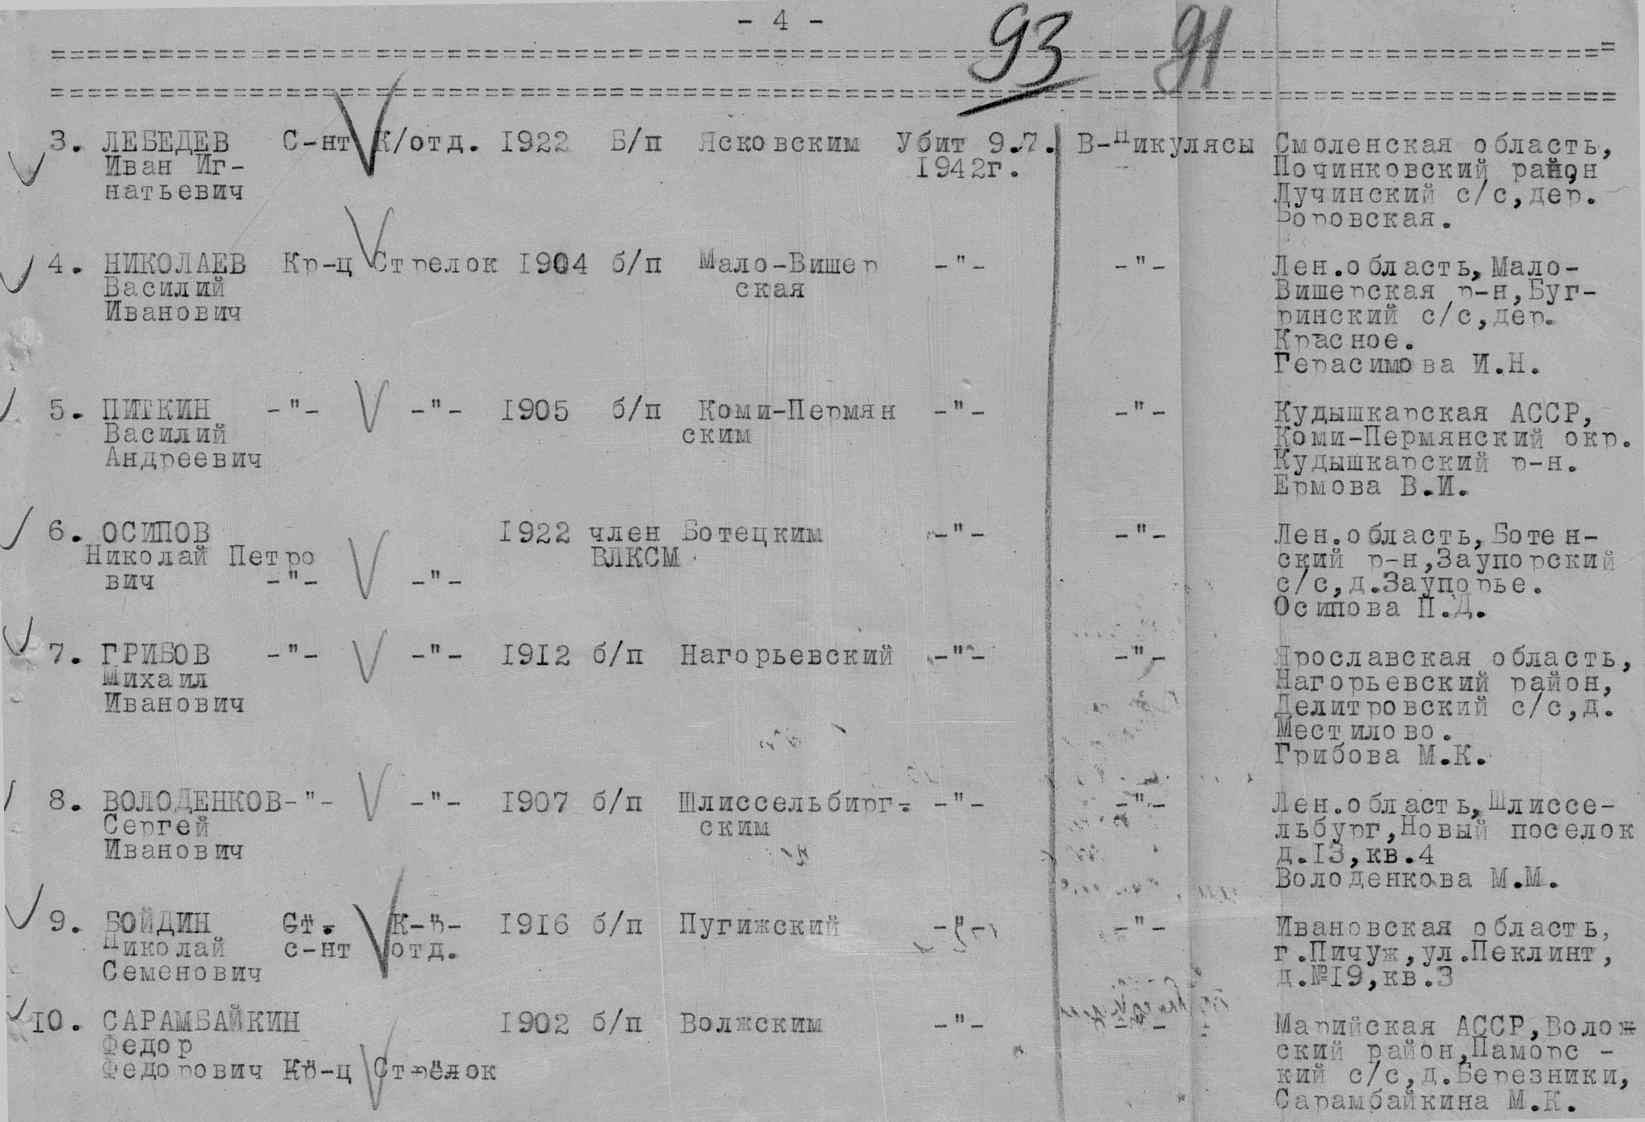 - 4 -
93 91
3. ЛЕБЕДЕВ С-нт К/отд. 1922 Б/п Ясковским Убит 9.7. В-Никулясы Смоленская область,
Иван Иг- 1942г. Починковский район
натьевич Лучинский с/с,дер.
Воровская.
4. НИКОЛАЕВ Кр-ц Стрелок 1904 б/п Мало-Вишер -"- -"- Лен.область,Мало-
Василий ская Вишерская р-н,Буг-
Иванович ринский с/с,дер.
Красное.
Герасимова И.Н.
5. ПИТКИН -"- -"- 1905 б/п Коми-Пермян -"- -"- Кудышкарская АССР,
Василий ским Коми-Пермянский окр.
Андреевич Кудышкарский р-н.
Ермова В.И.
6. ОСИПОВ 1922 член Ботецким -"- -"- Лен.область,Ботен-
Николай Петро ВЛКСМ ский р-н,Заупорский
вич -"- -"- с/с,д.Заупорье.
Осипова П.Д.
7. ГРИБОВ -"- -"- 1912 б/п Нагорьевский -"- -"- Ярославская область,
Михаил Нагорьевский район,
Иванович Делитровский с/с,д.
Местилово.
Грибова М.К.
8. ВОЛОДЕНКОВ-"- -"- 1907 б/п Шлиссельбирг- -"- -"- Лен.область,Шлиссе-
Сергей ским льбург,Новый поселок
Иванович д.13,кв.4
Володенкова М.М.
9. БОЙДИН Ст. К-р- 1916 б/п Пугижский -"- -"- Ивановская область,
Николай с-нт отд. г.Пичуж,ул.Пеклинт,
Семенович д.№19,кв.3
10. САРАМБАЙКИН 1902 б/п Волжским -"- -"- Марийская АССР,Волож
Федор ский район,Паморс -
Федорович Кр-ц Стрелок кий с/с,д.Березники,
Сарамбайкина М.К.